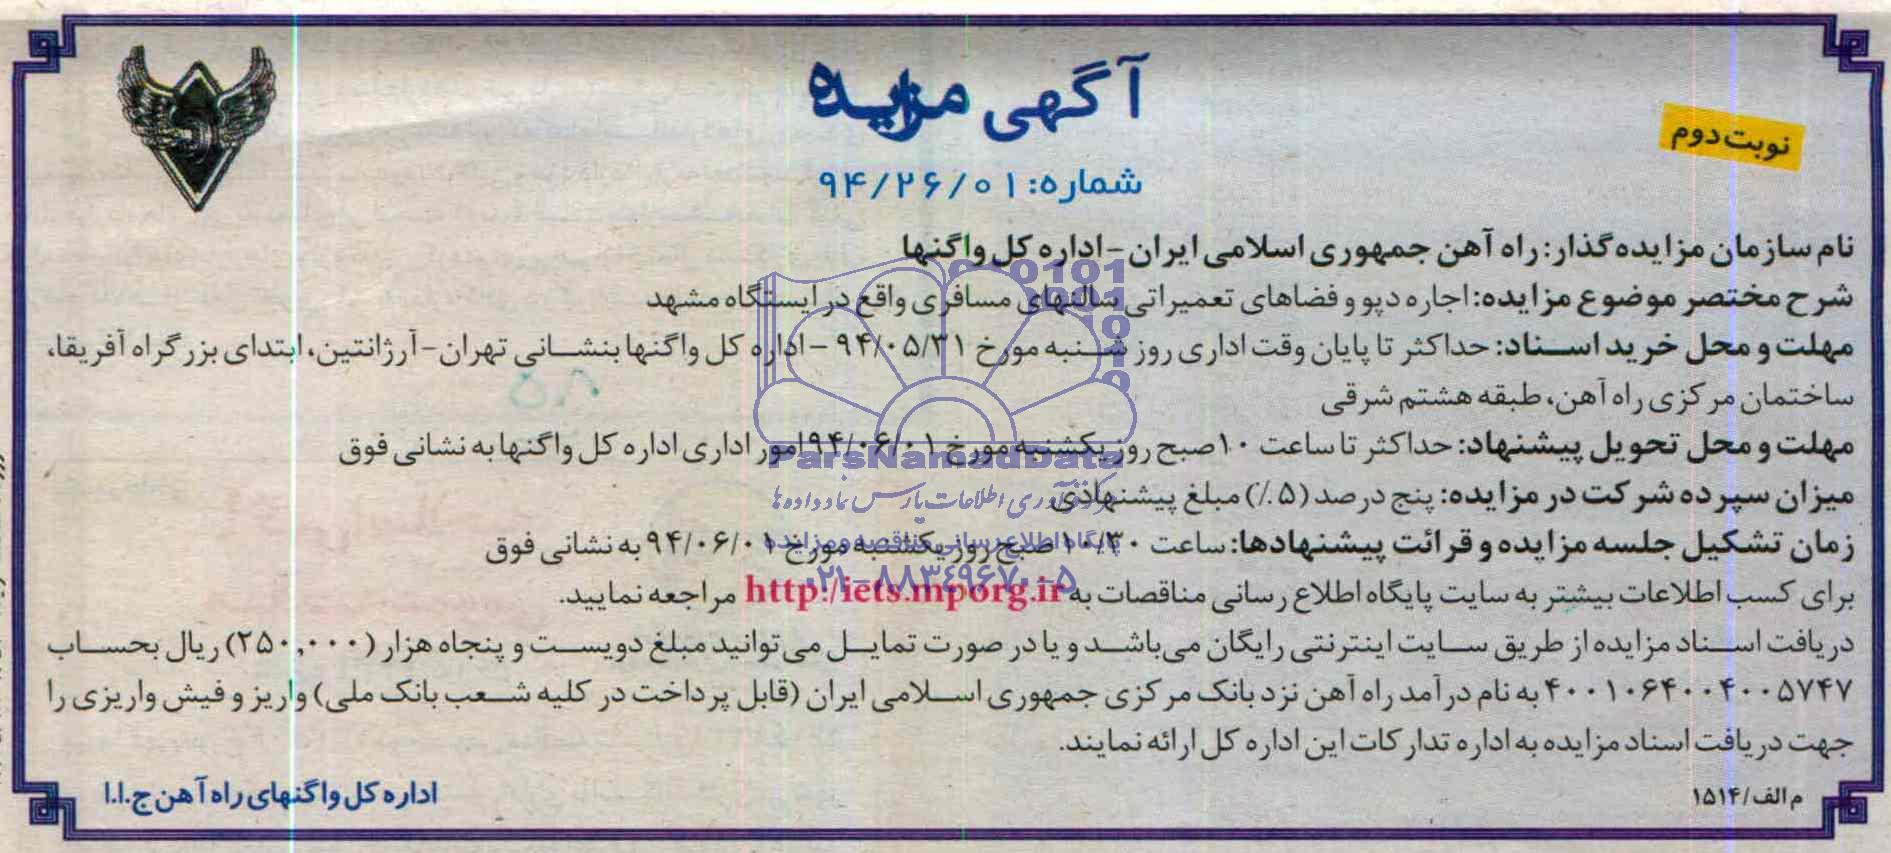 آگهی مزایده
نوبت دوم
شماره: ۹۴/۲۶/۰۱
نام سازمان مزایده گذار: راه آهن جمهوری اسلامی ایران - اداره کل واگنها
شرح مختصر موضوع مزایده: اجاره دپو و فضاهای تعمیراتی سالنهای مسافری واقع در ایستگاه مشهد
مهلت و محل خرید اسناد: حداکثر تا پایان وقت اداری روز شنبه مورخ ۹۴/۰۵/۳۱ - اداره کل واگنها بنشانی تهران - آرژانتین، ابتدای بزرگراه آفریقا،
ساختمان مرکزی راه آهن، طبقه هشتم شرقی
مهلت و محل تحویل پیشنهاد: حداکثر تا ساعت ۱۰ صبح روز یکشنبه مورخ ۹۴/۰۶/۰۱ امور اداری اداره کل واگنها به نشانی فوق
میزان سپرده شرکت در مزایده: پنج درصد (۵٪) مبلغ پیشنهادی
زمان تشکیل جلسه مزایده و قرائت پیشنهادها: ساعت ۱۰/۳۰ صبح روز یکشنبه مورخ ۹۴/۰۶/۰۱ به نشانی فوق
برای کسب اطلاعات بیشتر به سایت پایگاه اطلاع رسانی مناقصات به http:/iets.mporg.ir مراجعه نمایید.
دریافت اسناد مزایده از طریق سایت اینترنتی رایگان می‌باشد و یا در صورت تمایل می‌توانید مبلغ دویست و پنجاه هزار (۲۵۰,۰۰۰) ریال بحساب
۴۰۰۱۰۶۴۰۰۴۰۰۵۷۴۷ به نام درآمد راه آهن نزد بانک مرکزی جمهوری اسلامی ایران (قابل پرداخت در کلیه شعب بانک ملی) واریز و فیش واریزی را
جهت دریافت اسناد مزایده به اداره تدارکات این اداره کل ارائه نمایند.
م الف/۱۵۱۴
اداره کل واگنهای راه آهن ج.ا.ا
ParsNamadData
پایگاه اطلاع رسانی مناقصه و مزایده
۰۲۱-۸۸۳۴۹۶۷۰-۵